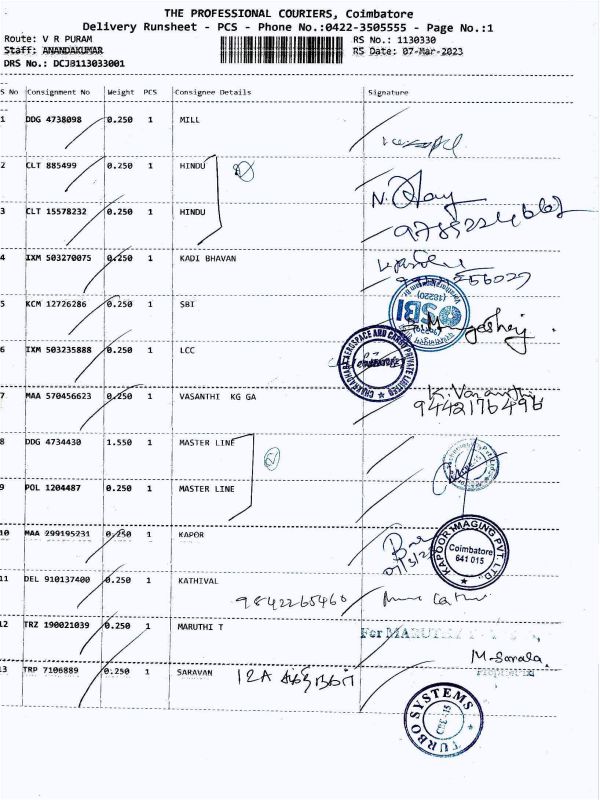 THE PROFESSIONAL COURIERS, Coimbatore
Delivery Runsheet - PCS - Phone No.:0422-3505555 - Page No.:1
Route: V R PURAM
RS No.: 1130330
Staff: ANANDAKUMAR
RS Date: 07-Mar-2023
DRS No.: DCJB113033001
S No Consignment No Weight PCS Consignee Details Signature
1 DDG 4738098 0.250 1 MILL
2 CLT 885499 0.250 1 HINDU 2
N.
3 CLT 15578232 0.250 1 HINDU
4 IXM 503270075 0.250 1 KADI BHAVAN
5 KCM 12726286 0.250 1 SBI
SBI
(18220)
6 IXM 503235888 0.250 1 LCC
CHAKRADHARA AEROSPACE AND CARGO PRIVATE LIMITED
COIMBATORE
7 MAA 570456623 0.250 1 VASANTHI KG GA
K. Vasanthi
9442176496
8 DDG 4734430 1.550 1 MASTER LINE 2
9 POL 1204487 0.250 1 MASTER LINE
10 MAA 299195231 0.250 1 KAPOR
KAPOOR IMAGING PVT. LTD.
Coimbatore
641 015
11 DEL 910137400 0.250 1 KATHIVAL
9842265460
12 TRZ 190021039 0.250 1 MARUTHI T
For MARUTHI
M. Sarala
13 TRP 7106889 0.250 1 SARAVAN 12A
TURBO SYSTEMS